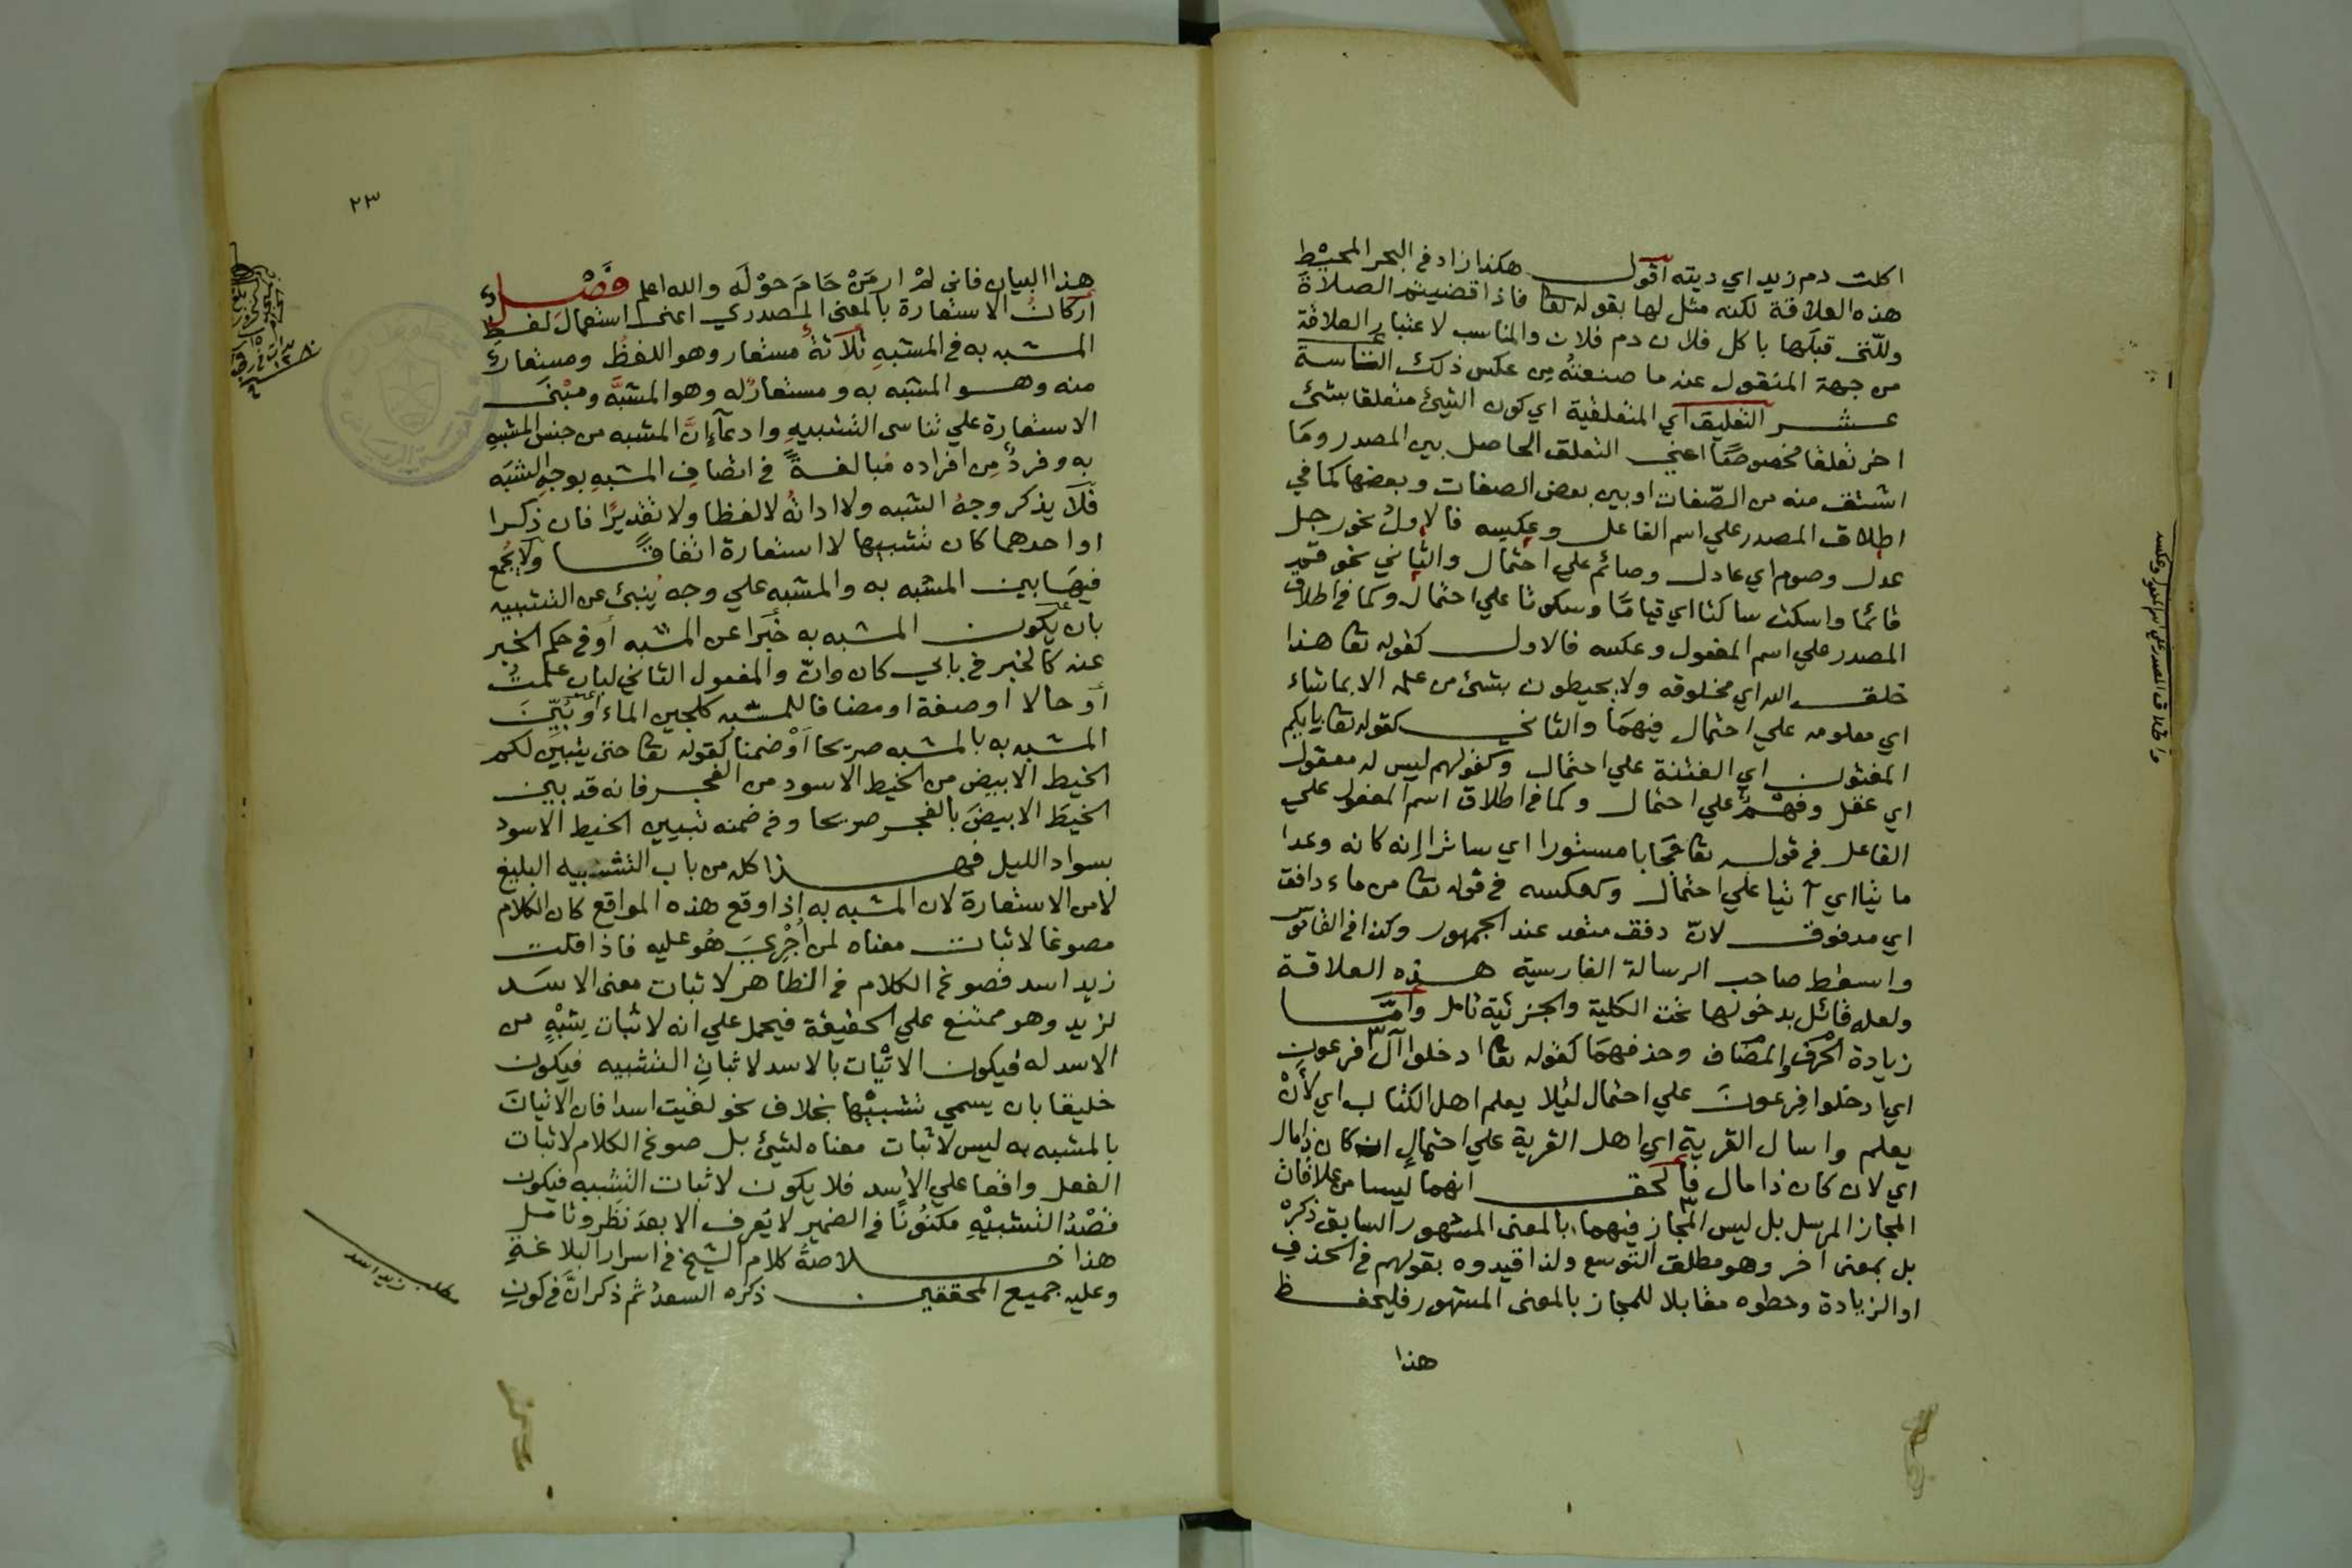 اكلت دم زيد اي ديته اقول هكذا زاد في البحر المحيط
هذه العلاقة لكنه مثل لها بقوله تعا فاذا قضيتم الصلاة
وللتى قبلها باكل فلان دم فلان والمناسب لاعتبار العلاقة
من جهة المنقول عنه ما صنعته من عكس ذلك التاسعة
عشر التعليق اي المتعلقية اي كون الشيئ متعلقا بشئ
اخر تعلقا مخصوصا اعني التعلق الحاصل بين المصدر وما
اشتق منه من الصّفات او بين بعض الصفات وبعضها كما في
اطلاق المصدر علي اسم الفاعل وعكسه فالاول نحو رجل
عدل وصوم اي عادل وصائم علي احتمال والثاني نحو قم
قائما واسكت ساكتا اي قياما وسكوتا علي احتمال وكما في اطلاق
المصدر علي اسم المفعول وعكسه فالاول كقوله تعا هذا
خلق الله اي مخلوقه ولا يحيطون بشئ من علمه الا بما شاء
اي معلومه علي احتمال فيهما والثاني كقوله تعا بايكم
المفتون اي الفتنة علي احتمال وكقولهم ليس له معقول
اي عقل وفهم علي احتمال وكما في اطلاق اسم المفعول علي
الفاعل في قوله تعا حجابا مستورا اي ساترا انه كانه وعدا
ماتيا اي آتيا علي احتمال وكعكسه في قوله تعا من ماء دافق
اي مدفوق لانّ دفق متعد عند الجمهور وكذا في القاموس
واسقط صاحب الرسالة الفارسية هذه العلاقة
ولعله قائل بدخولها تحت الكلية والجزئية تامل وامّا
زيادة الحرف والمضاف وحذفهما كقوله تعا ادخلوا آل فرعون
اي ادخلوا فرعون علي احتمال لئلا يعلم اهل الكتاب اي لأنْ
يعلم واسال القرية اي اهل القرية علي احتمال ان كان ذا مال
اي لان كان ذا مال فالحق انهما ليسا من علاقات
المجاز المرسل بل ليس المجاز فيهما بالمعنى المشهور السابق ذكره
بل بمعنى اخر وهو مطلق التوسع ولذا قيدوه بقولهم في الحذف
او الزيادة وحطوه مقابلا للمجاز بالمعنى المشهور فليحفظ
هذا
واطلاق المصدر علي اسم المفعول وعكسه
٢٣
هذا البيان فاني لم ار من حام حوله والله اعلم فصل
أركان الاستعارة بالمعنى المصدري اعنى استعمال لفظ
المشبه به في المشبه ثلاثة مستعار وهو اللفظ ومستعار
منه وهو المشبه به ومستعار له وهو المشبّه ومبنى
الاستعارة علي تناسى التشبيه وادعآء انّ المشبه من جنس المشبه
به وفرد من افراده مبالغة في اتصاف المشبه بوجه الشبه
فلا يذكر وجه الشبه ولا اداته لا لفظا ولا تقديرًا فان ذكرا
او احدهما كان تشبيها لا استعارة اتفاقا ولا يجمع
فيها بين المشبه به والمشبه علي وجه ينبئ عن التشبيه
بان يكون المشبه به خبرا عن المشبه أو في حكم الخبر
عنه كالخبر في بابي كان وانّ والمفعول الثاني لباب علمت
أو حالا او صفة او مضافا للمشبه كلجين الماء أو بيّن
المشبه به بالمشبه صريحا أو ضمنا كقوله تعا حتى يتبين لكم
الخيط الابيض من الخيط الاسود من الفجر فانه قد بين
الخيط الابيض بالفجر صريحا وفي ضمنه تبيين الخيط الاسود
بسواد الليل فهذا كله من باب التشبيه البليغ
لا من الاستعارة لان المشبه به اذا وقع هذه المواقع كان الكلام
مصوغا لاثبات معناه لمن اجري هو عليه فاذا قلت
زيد اسد فصوغ الكلام في الظاهر لاثبات معنى الاسد
لزيد وهو ممتنع علي الحقيقة فيحمل علي انه لاثبات شبه من
الاسد له فيكون الاتيان بالاسد لاثبات التشبيه فيكون
خليقا بان يسمي تشبيها بخلاف نحو لقيت اسدا فان الاتيان
بالمشبه به ليس لاثبات معناه لشيئ بل صوغ الكلام لاثبات
الفعل واقعا علي الاسد فلا يكون لاثبات التشبيه فيكون
قصد التشبيه مكنونا في الضمير لا يعرف الا بعد نظر وتامل
هذا خلاصة كلام الشيخ في اسرار البلاغة
وعليه جميع المحققين ذكره السعد ثم ذكر انّ في كون
مطلب زيد اسد